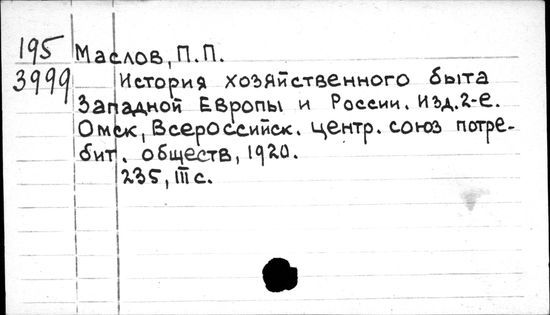 195 Маслов, П.П.
3999 История хозяйственного быта
Западной Европы и России. Изд.2-е.
Омск, Всероссийск. центр. союз потре-
бит. обществ, 1920.
235, III с.